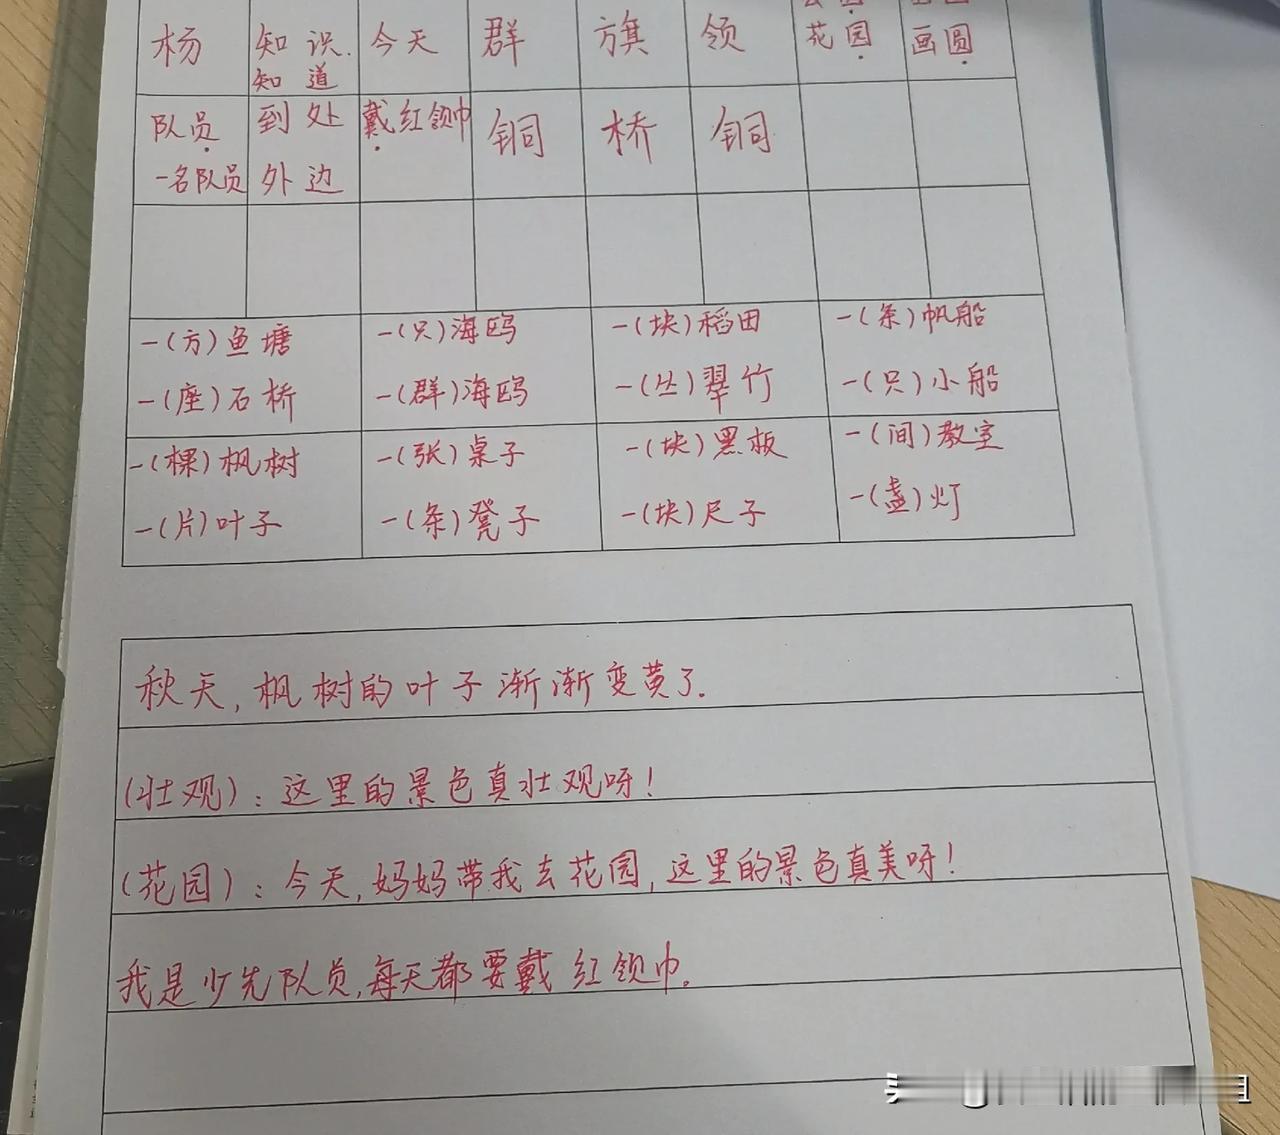 杨 知识. 今天 群 旗 领 花园 画圆
知道
队员 到处 戴红领巾 铜 桥 铜
一名队员 外边
一(方)鱼塘 一(只)海鸥 一(块)稻田 一(条)帆船
一(座)石桥 一(群)海鸥 一(丛)翠竹 一(只)小船
一(棵)枫树 一(张)桌子 一(块)黑板 一(间)教室
一(片)叶子 一(条)凳子 一(块)尺子 一(盏)灯
秋天,枫树的叶子渐渐变黄了.
(壮观):这里的景色真壮观呀!
(花园):今天,妈妈带我去花园,这里的景色真美呀!
我是少先队员,每天都要戴红领巾.